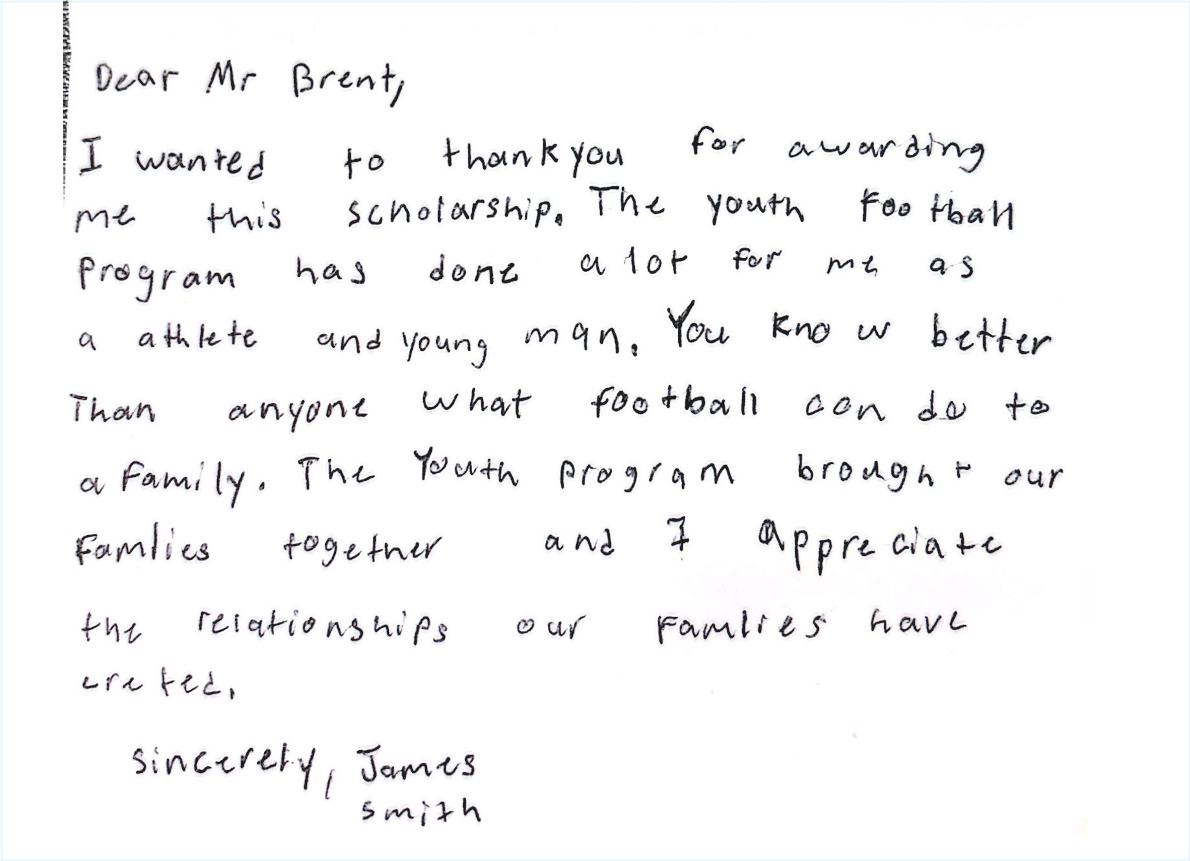 Dear Mr Brent,
I wanted to thank you for awarding
me this scholarship. The youth football
program has done a lot for me as
a athlete and young man. You know better
Than anyone what football can do to
a family. The Youth program brought our
Famlies together and I appreciate
the relationships our Famlies have
creted.
sincerely, James
smith